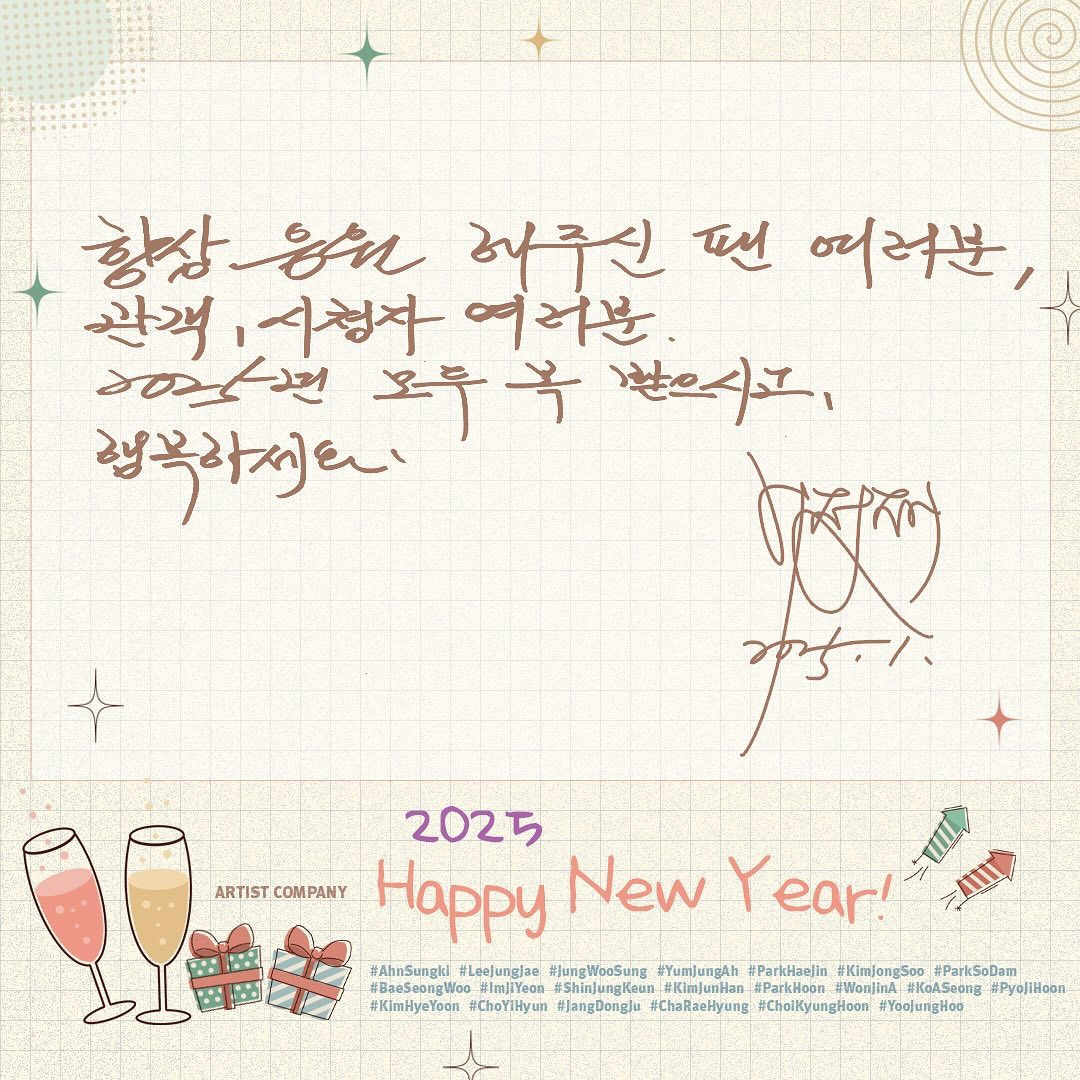 항상 응원 해주신 팬 여러분,
관객, 시청자 여러분.
2025년 모두 복 받으시고,
행복하세요.
2025. 1.
2025
ARTIST COMPANY
Happy New Year!
#AhnSungki #LeeJungJae #JungWooSung #YumJungAh #ParkHaeJin #KimJongSoo #ParkSoDam
#BaeSeongWoo #ImJiYeon #ShinJungKeun #KimJunHan #ParkHoon #WonJinA #KoASeong #PyoJiHoon
#KimHyeYoon #ChoYiHyun #JangDongJu #ChaRaeHyung #ChoiKyungHoon #YooJungHoo